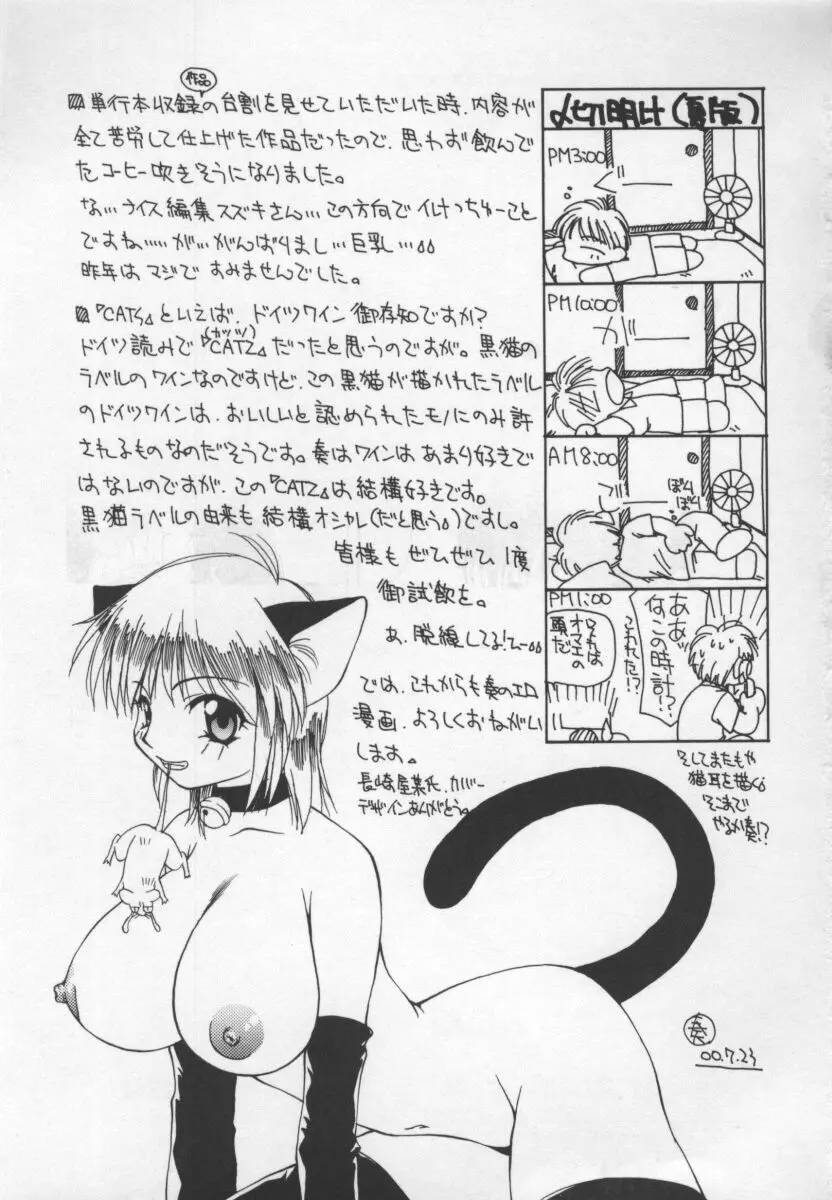 作品
▨単行本収録の台割を見せていただいた時、内容が
全て苦労して仕上げた作品だったので、思わず飲んで
たコーヒー吹きそうになりました。
な…ライス編集スズキさん…この方向でイけっちゅーこと
ですね……が…がんばりまし…巨乳…
昨年はマジですみませんでした。
▨『CATS』といえば、ドイツワイン御存知ですか?
(カッツ)
ドイツ読みで『CATZ』だったと思うのですが。黒猫の
ラベルのワインなのですけど、この黒猫が描かれたラベル
のドイツワインは、おいしいと認められたモノにのみ許
されるものなのだそうです。奏はワインはあまり好きで
はないのですが、この『CATZ』は結構好きです。
黒猫ラベルの由来も結構オシャレ(だと思う。)ですし。
皆様もぜひぜひ1度
御試飲を。
あ、脱線してる!
では、これからも奏のエロ
漫画、よろしくおねがい
します。
長崎屋某氏、カバー
デザインありがとう。
〆切明け(夏版)
PM3:00
PM10:00
ガー
AM8:00
ぼり
ぼり
PM1:00
ああッ
なにこの時計!?
こわれた!?
オマエの
頭だ
そしてまたもや
猫耳を描く
そこまで
やるか奏!?
奏
00.7.23